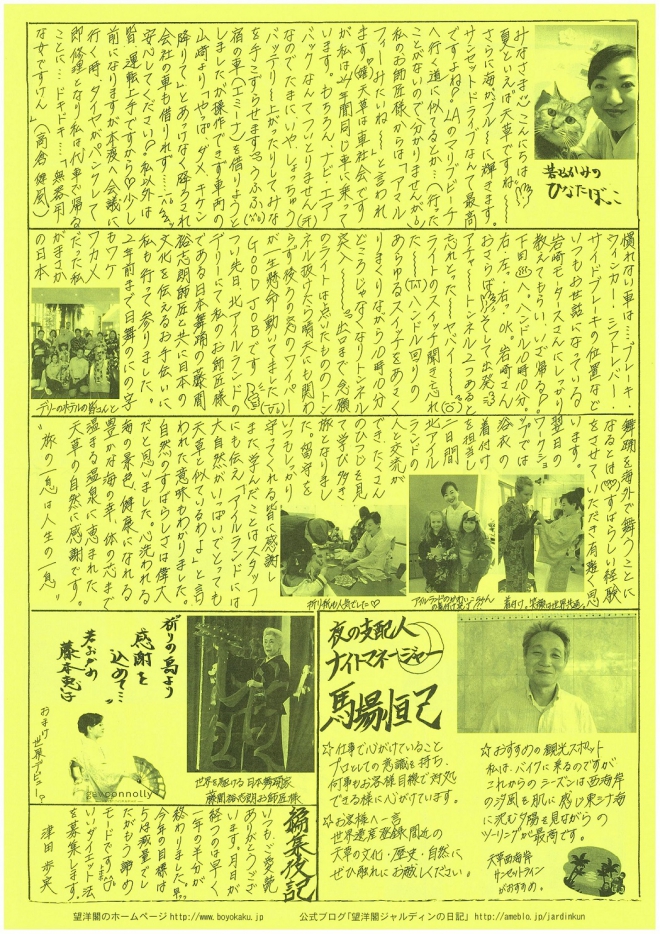 若おかみの
ひなたぼこ
みなさま♡こんにちは
夏といえば天草ですね〜
さらに海がブルーに輝きます。
サンセットドライブなんて最高
ですよね？LAのマリブビーチ
へ行く道に似てるとか…(行った
ことがないので分かりませんが)
私のお師匠様からは「アマル
フィーみたいね〜」と言われ
ます♡(嬉)天草は車社会です
が私は
年間同じ車に乗って
います。もちろん、ナビ・エア
バックなんてついとりません(汗)
なのでたまに、いや、しょっちゅう
バッテリー上がったりしてみな
を手こずらせます
うふふ
宿の車(エミーナ)を借りようと
しましたが操作できず車内の
山崎より「やっぱ、ダメ、キケン
降りて」とあっけなく降ろされ
会社の車も借りれず……
安心してください♡私以外は
皆、運転上手ですから♡少し
前になりますが本渡へ会議に
行く時、タイヤがパンクして
即修理となり私は代車で帰る
ことに…ドキドキ…「無器用
な女ですけん」(高倉健風)
慣れない車は…ブレーキ・
ウィンカー・シフトレバー・
サイドブレーキの位置など
いつもお世話になっている
岩崎モータースさんにしっかり
教えてもらい、いざ帰る♡。
下田
へ。ハンドル10時10分。
右、左、右、OK。岩崎さん
おさらば
そして出発
アチャートンネル2つあると
忘れとった〜ヤバイ〜
ライトのスイッチ聞き忘れ
た〜
ハンドル回りの
あらゆるスイッチをあさく
りまくりながら10時10分
どころじゃなくなりトンネル
突入〜
出口まで念願
のライトは点いたもののトン
ネル抜けたら晴天にも関わ
らず後ろの窓のワイパー
が一生懸命動いてました
GOOD JOBです
つい先日、北アイルランドの
デリーにて私のお師匠様
である日本舞踊の藤間
裕志朗師匠と共に日本の
文化を伝えるお手伝いに、
私も行って参りました。
2年前まで日舞のにの字
もワケ
ワカメ
だった私
がまさか
の日本
デリーのホテルの皆さんと
舞踊を海外で舞うことに
なるとは
すばらしい経験
をさせていただき有難く思
います。
翌日の
ワークショ
ップでは
浴衣の
着付け
を担当し
二日間
北アイル
ランドの
人と交流が
でき、たくさん
のひつじを見
て学び多き
旅となりまし
た。留守を
いつもしっかり
守ってくれる皆に感謝し
また学んだことはスタッフ
にも伝え「アイルランドには
大自然がいっぱいでとっても
天草と似てるわよ」と言
われた意味もわかりました。
自然のすばらしさは偉大
だと思いました。心洗われる
海の景色、健康になれる
豊かな海の幸、体の芯まで
温まる温泉に恵まれた
天草の自然に感謝です。
"旅の一息は人生の一息"
着付け、笑顔は世界共通。
アイルランドのかわいこちゃん
折り紙も人気でした♡
祈りの島より
感謝を
込めて…"
若おかみ
藤本
おまけ
世界デビュー？
世界を駆ける日本舞踊家
藤間裕志朗お師匠様
夜の支配人
ナイトマネージャー
馬場恒己
☆仕事で心がけていること
プロとしての意識を持ち、
何事もお客様目線で対処
できる様に心がけています。
☆お客様へ一言
世界遺産登録間近の
天草の文化・歴史・自然に
ぜひ触れにお越しください。
☆おすすめの観光スポット
私は、バイクに乗るのですが
これからのシーズンは西海岸
の汐風を肌に感じ東シナ海
に沈む夕陽を見ながらの
ツーリングが最高です。
天草西海岸
サンセットライン
がおすすめ。
編集後記
いつもご愛読
ありがとうござ
います。月日が
経つのは早く
一年の半分が
終わりました。
今年の目標は
ちは減量でし
たがもう諦め
モードです
いいダイエット法
を募集します。
津田 歩実
望洋閣のホームページ http://www.boyokaku.jp　公式ブログ「望洋閣ジャルディンの日記」 http://ameblo.jp/jardinkun